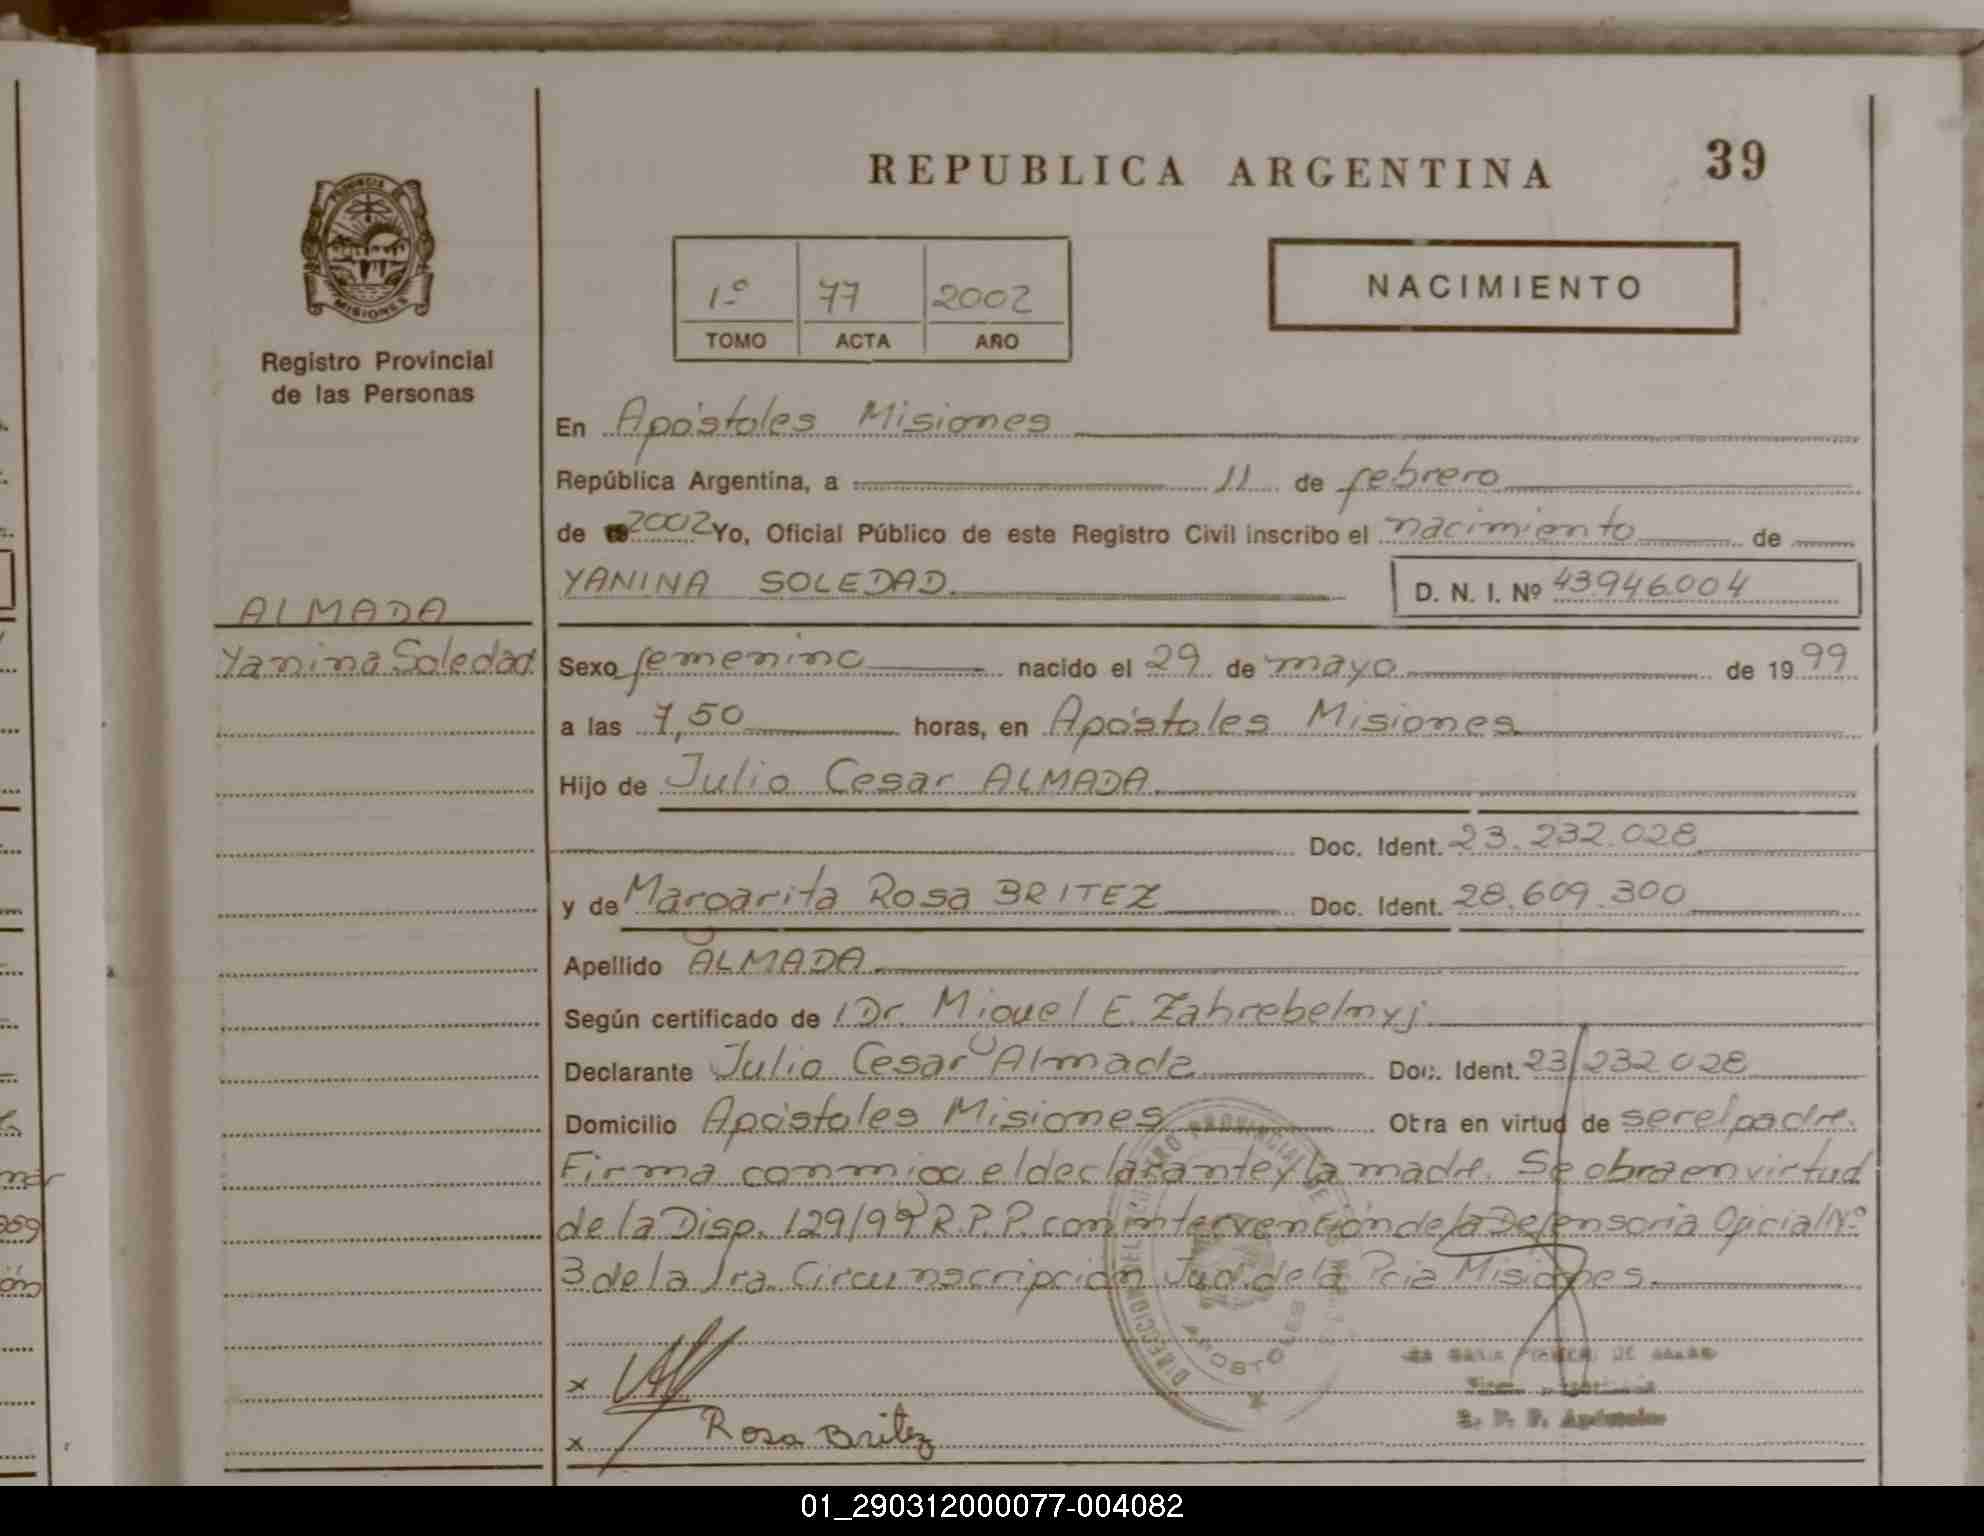 REPUBLICA ARGENTINA
39
PROVINCIA DE
MISIONES
Registro Provincial
de las Personas
1º 77 2002
TOMO ACTA AÑO
NACIMIENTO
En Apóstoles Misiones
República Argentina, a 11 de febrero
de 2002 Yo, Oficial Público de este Registro Civil inscribo el nacimiento de
YANINA SOLEDAD D. N. I. Nº 43.946.004
ALMADA
Yanina Soledad
Sexo femenino nacido el 29 de mayo de 1999
a las 7,50 horas, en Apóstoles Misiones
Hijo de Julio Cesar ALMADA
Doc. Ident. 23.232.028
y de Margarita Rosa BRITEZ Doc. Ident. 28.609.300
Apellido ALMADA
Según certificado de Dr. Miguel E. Zahrebelnyj
Declarante Julio Cesar Almada Doc. Ident. 23 232 028
Domicilio Apóstoles Misiones Obra en virtud de ser el padre.
Firma conmigo el declarante y la madre. Se obra en virtud
de la Disp. 129/99 R.P.P. con intervención de la Defensoria Oficial Nº
3 de la 1ra. Circunscripción Jud. de la Pcia Misiones.
x
x Rosa Britez
R. P. P. Apóstoles
APOSTOLES
01_290312000077-004082